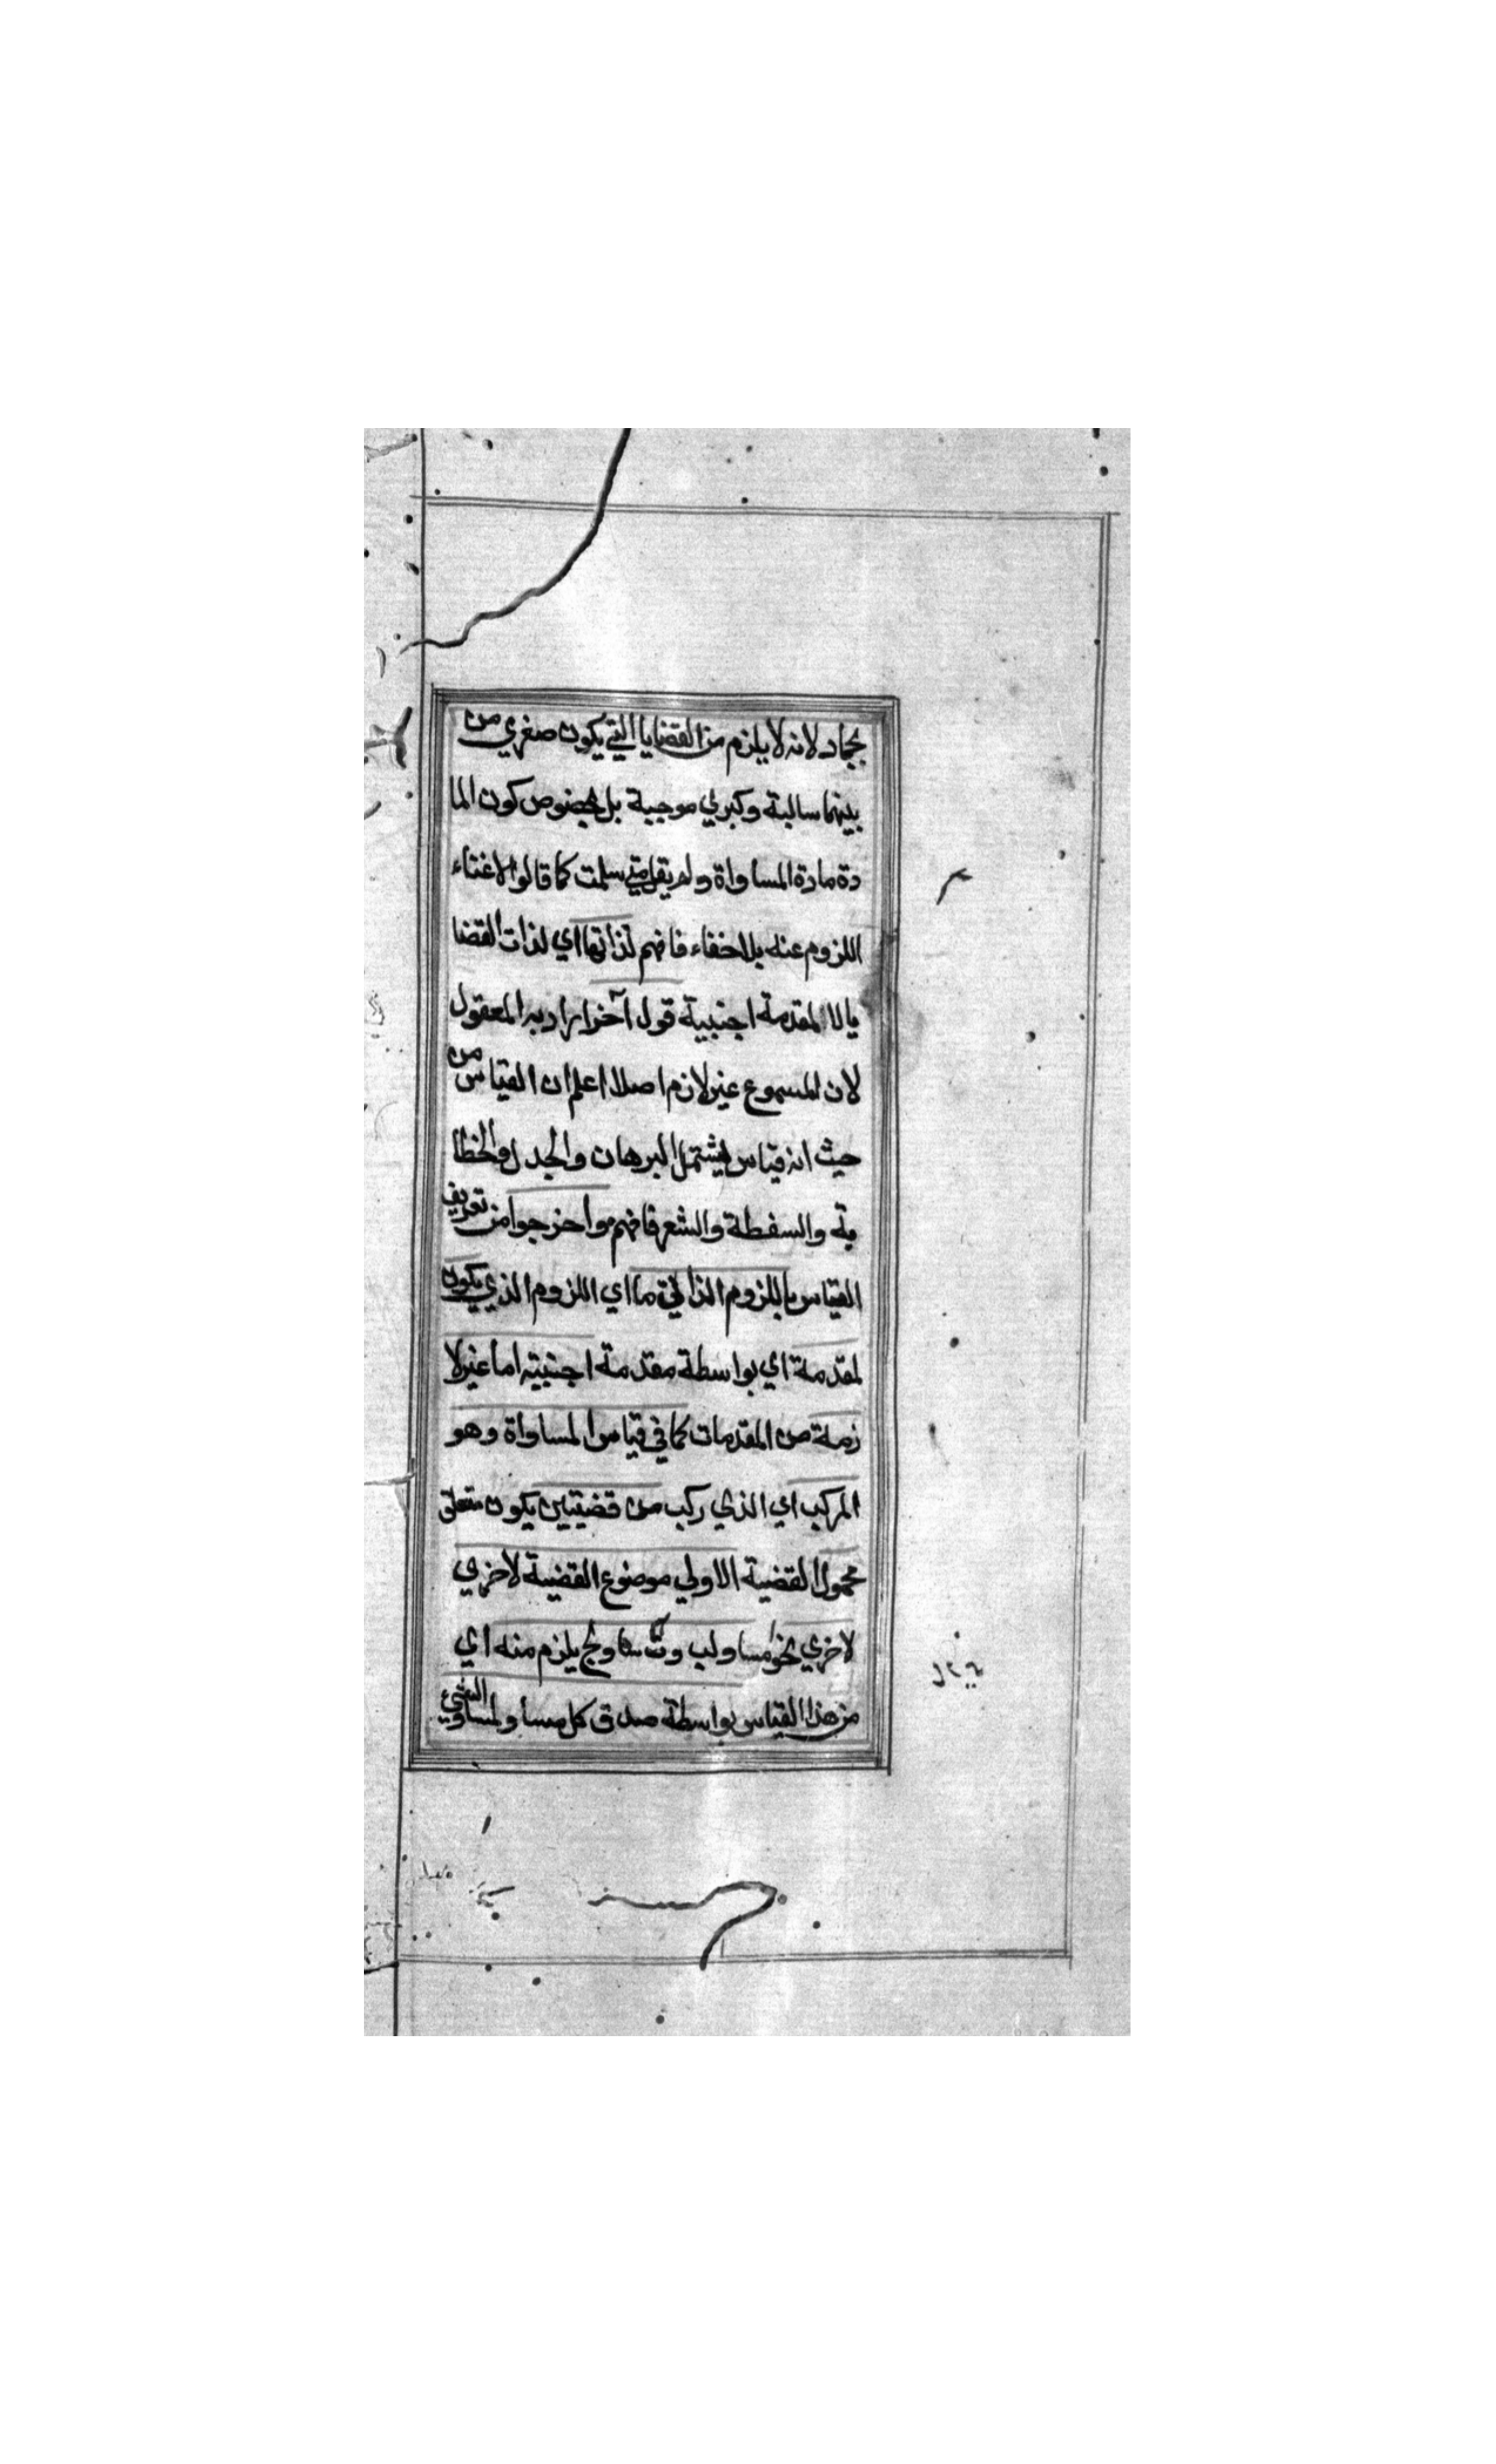 بجماد لانه لا يلزم من القضايا التي يكون صغري من
بينهما سالبة وكبري موجبة بل لخصوص كون الما
دة مادة المساواة ولم يقل متي سلمت كما قالوا لاغتناء
اللزوم عنه بلا خفاء فافهم لذاتها اي لذات القضا
يا لا المقدمة اجنبية قول آخر ايراد به المعقول
لان المسموع غير لازم اصلا اعلم ان القياس من
حيث انه قياس يشتمل البرهان والجدل والخطا
بة والسفطة والشعر فافهم واخرجوا من تعريف
القياس باللزوم الذاتي ما اي اللزوم الذي يكون
لمقدمة اي بواسطة مقدمة اجنبية اما غير لا
زمة من المقدمات كما في قياس المساواة وهو
المركب اي الذي ركب من قضيتين يكون متعلق
محمول القضية الاولي موضوع القضية لاخري
لاخري نحو ا مساو لب وب مساو لج يلزم منه اي
من هذا القياس بواسطة صدق كل مساو لمساوي الشيء